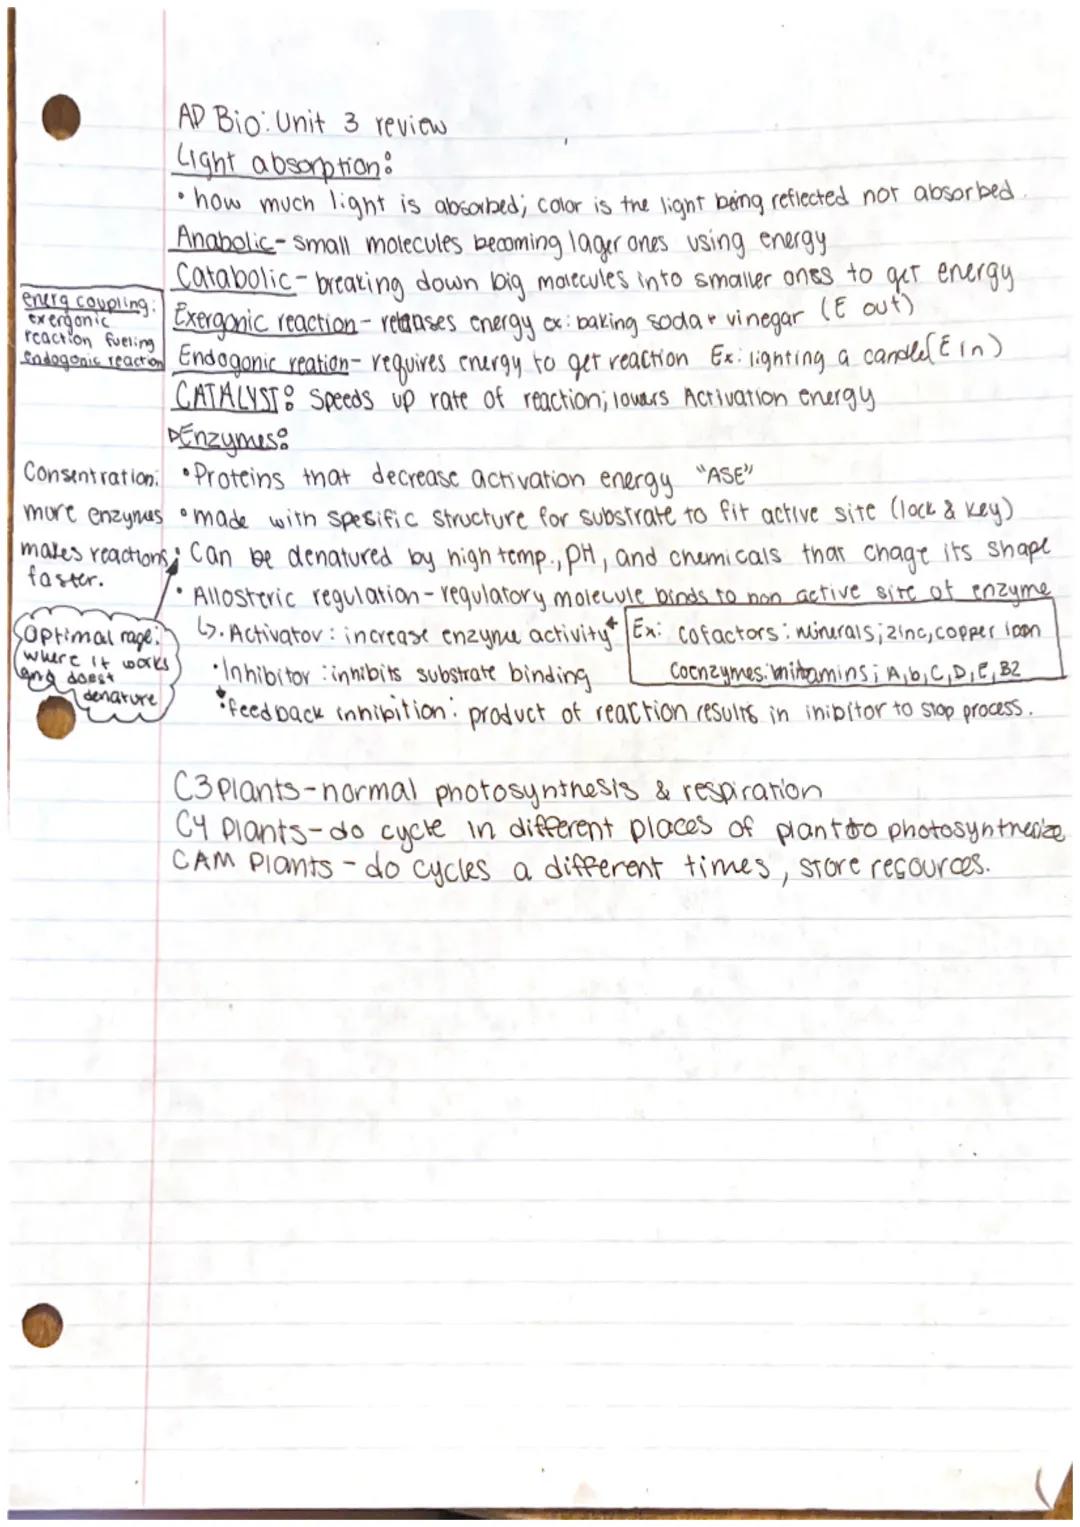 AP Bio: Unit 3 review
Light absorption:
• how much light is absorbed; color is the light being reflected not absorbed.
Anabolic- small molecules becoming lager ones using energy
Catabolic- breaking down big molecules into smaller ones to get energy
energ coupling:
exergonic
reaction fueling
endogonic reaction
Exergonic reaction- releases energy ex: baking soda + vinegar (E out)
Endogonic reation- requires energy to get reaction Ex: lighting a candle (E in)
CATALYST: Speeds up rate of reaction; lowers Activation energy
Enzymes:
• Proteins that decrease activation energy "ASE"
• made with spesific structure for substrate to fit active site (lock & key)
• Can be denatured by high temp., pH, and chemicals that chage its shape
Consentration:
more enzymes
makes reactions
faster.
Optimal rage:
where it works
and doest
denature
• Allosteric regulation- regulatory molecule binds to non active site of enzyme
↳ • Activator: increase enzyme activity
Ex: cofactors: minerals; zinc, copper
Coenzymes: A, b, C, D, E, B2
• Inhibitor: inhibits substrate binding
• feedback inhibition: product of reaction results in inibitor to stop process.
C3 Plants- normal photosynthesis & respiration
C4 Plants- do cycle in different places of plant to photosynthesize
CAM Plants - do cycles a different times, store resources.